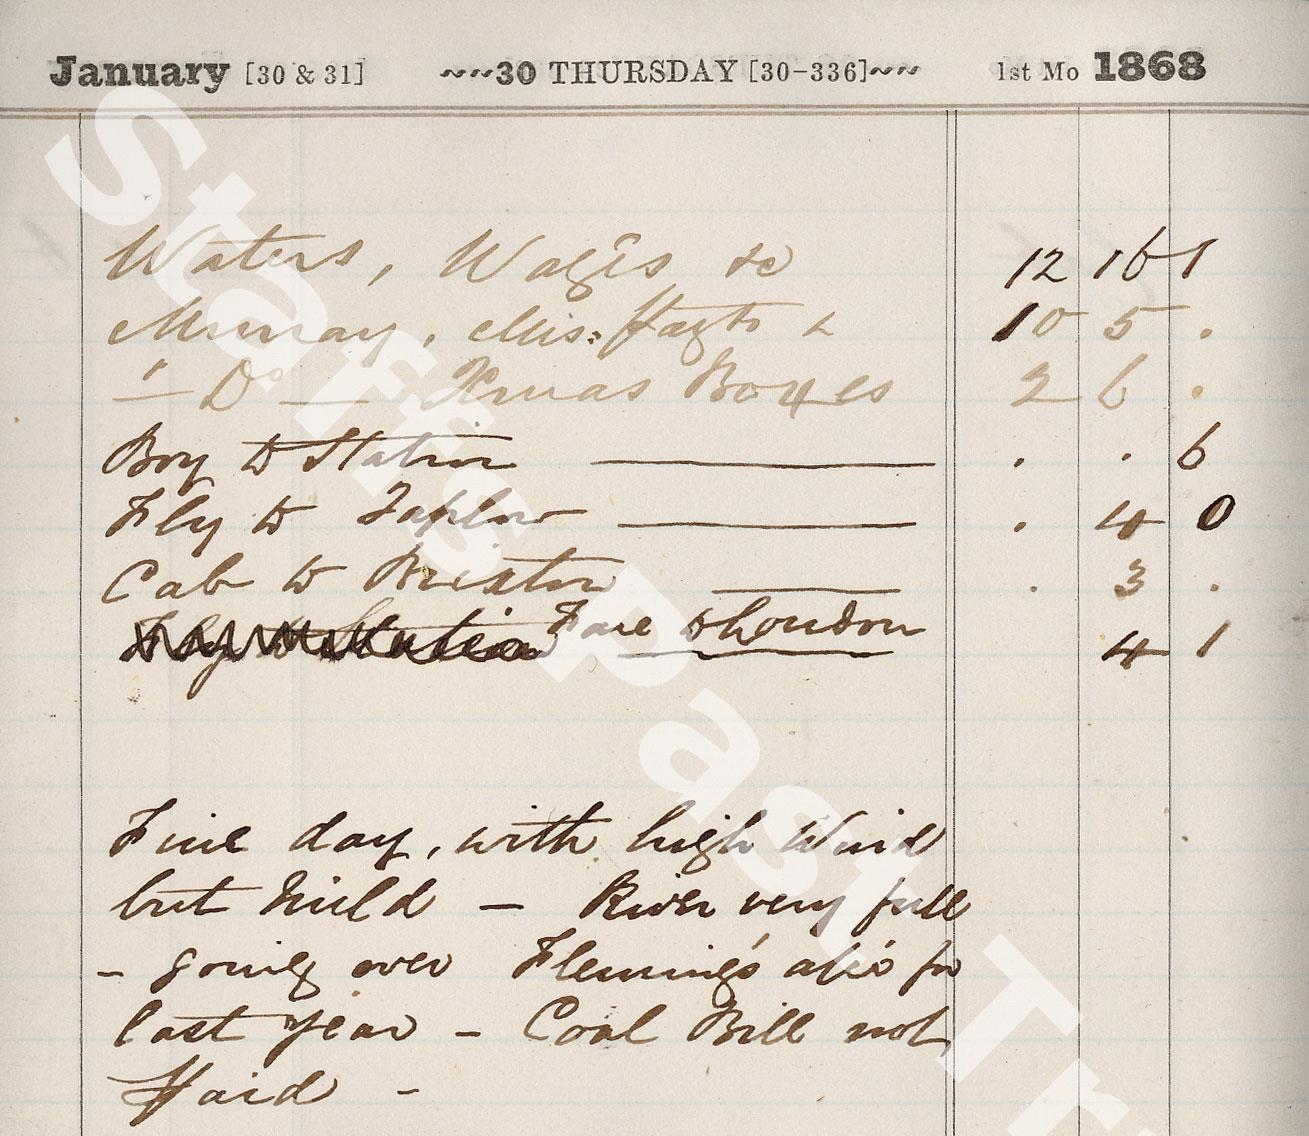 January [30 & 31] ~~~30 THURSDAY [30-336]~~~ 1st Mo 1868
Waters, Wages &c 12 16 1
Murray, Mis: Paymts & 10 5 .
" — Do — Xmas Boxes 2 6 .
Boy to Station . . 6
Fly to Taplow . 4 0
Cab to Brixton . 3 .
Fare to London 4 1
Fine day, with high Wind
but Mild — River very full
- going over Fleming's a/cs for
last year - Coal Bill not
Paid -
Staffs Past Tr